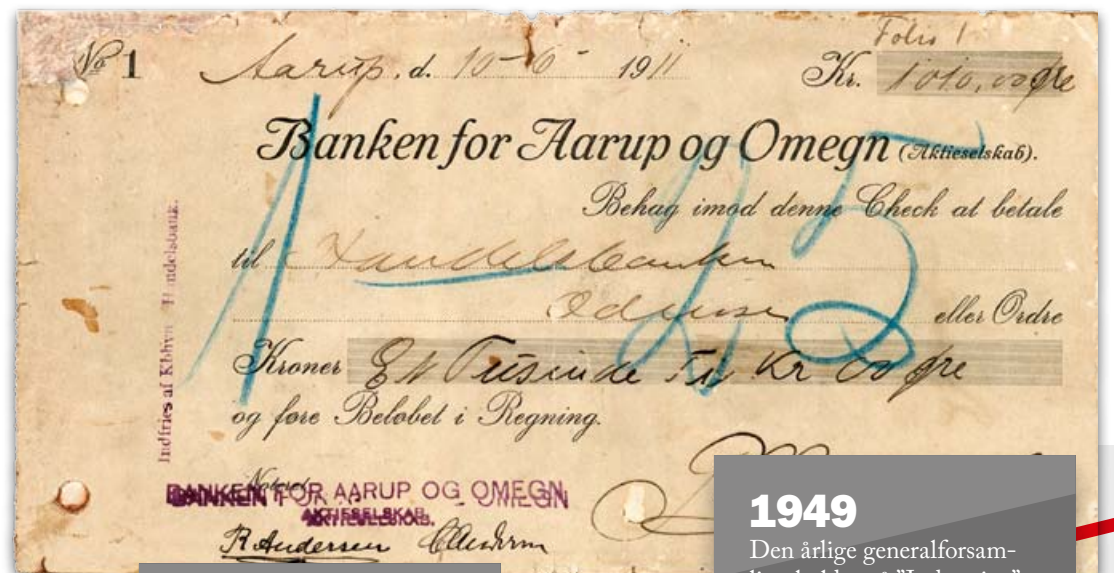 Folio 1
No 1 Aarup, d. 10-6- 1911 Kr. 1010,00 Øre
Banken for Aarup og Omegn (Aktieselskab).
Behag imod denne Check at betale
til Handelsbanken
Odense eller Ordre
Kroner Et Tusinde Ti Kr 00 Øre
og føre Beløbet i Regning.
Indfries af Kbhvn Handelsbank.
Noteret
BANKEN FOR AARUP OG OMEGN
AKTIESELSKAB.
R Andersen
1949
Den årlige generalforsam-